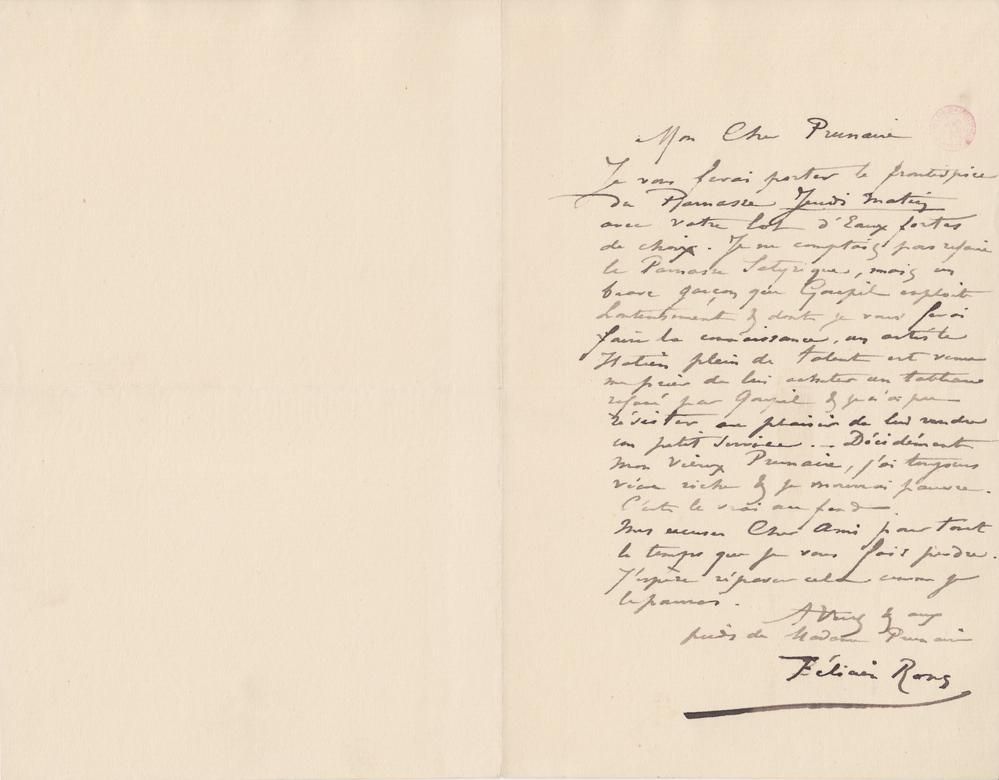 Mon Cher Prunaire
Je vous ferai porter le frontispice
du Parnasse Jeudi matin
avec votre lot d'Eaux fortes
de choix. Je ne comptais pas refaire
le Parnasse Satyrique, mais un
brave garçon que Goupil exploite
honteusement & dont je vous ferai
faire la connaissance, un artiste
Italien plein de talent est venu
me prier de lui acheter un tableau
refusé par Goupil & je n'ai pu
résister au plaisir de lui rendre
un petit service. – Décidément
mon vieux Prunaire, j'ai toujours
vécu riche & je mourrai pauvre.
C'est le vrai au fond
Mes excuses Cher Ami pour tout
le temps que je vous fais perdre.
J'espère réparer cela comme je
le pourrai.
A Vous & aux
pieds de Madame Prunaire
Félicien Rops